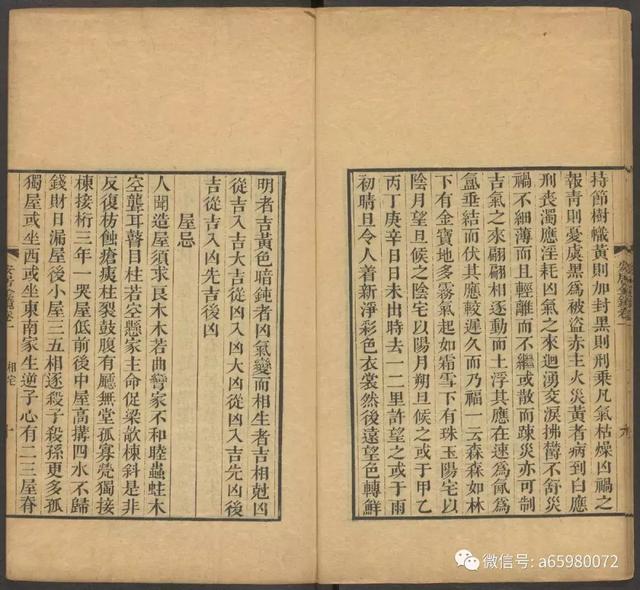 持節樹幟黃則加封黑則刑乗凡氣枯燥凶禍之
報靑則憂虞黑爲被盜赤主火災黃者病到白應
刑喪濁應淫耗凶氣之來迴湧交淚拂鬱不舒災
禍不細薄而且輕離而不繼或散而踈災亦可制
吉氣之來翩翩相逐動而土浮其應在速爲氣爲
氳垂結而伏其應較遲久而乃福一云森森如林
下有金寶地多霧氣起如霜雪下有珠玉陽宅以
陰月望旦候之陰宅以陽月朔旦候之或于甲乙
丙丁庚辛日日未出時去一二里許望之或于雨
初晴旦令人着新淨彩色衣裳然後遠望色轉鮮
明者吉黃色暗鈍者凶氣變而相生者吉相尅凶
從吉入吉大吉從凶入凶大凶從凶入吉先凶後
吉從吉入凶先吉後凶
屋忌
人聞造屋須求良木木若曲彎家不和睦蟲蛀木
空聾耳瞽目柱若空懸家主命促梁欹棟斜是非
反復枋蝕瘡痍柱裂鼓腹有廳無堂孤寡煢獨接
棟接桁三年一哭屋低前後中屋高搆四水不歸
錢財日漏屋後小屋三五相逐殺子殺孫更多孤
獨屋或坐西或坐東南家生逆子心有二三屋脊
相宅
微信号: a65980072